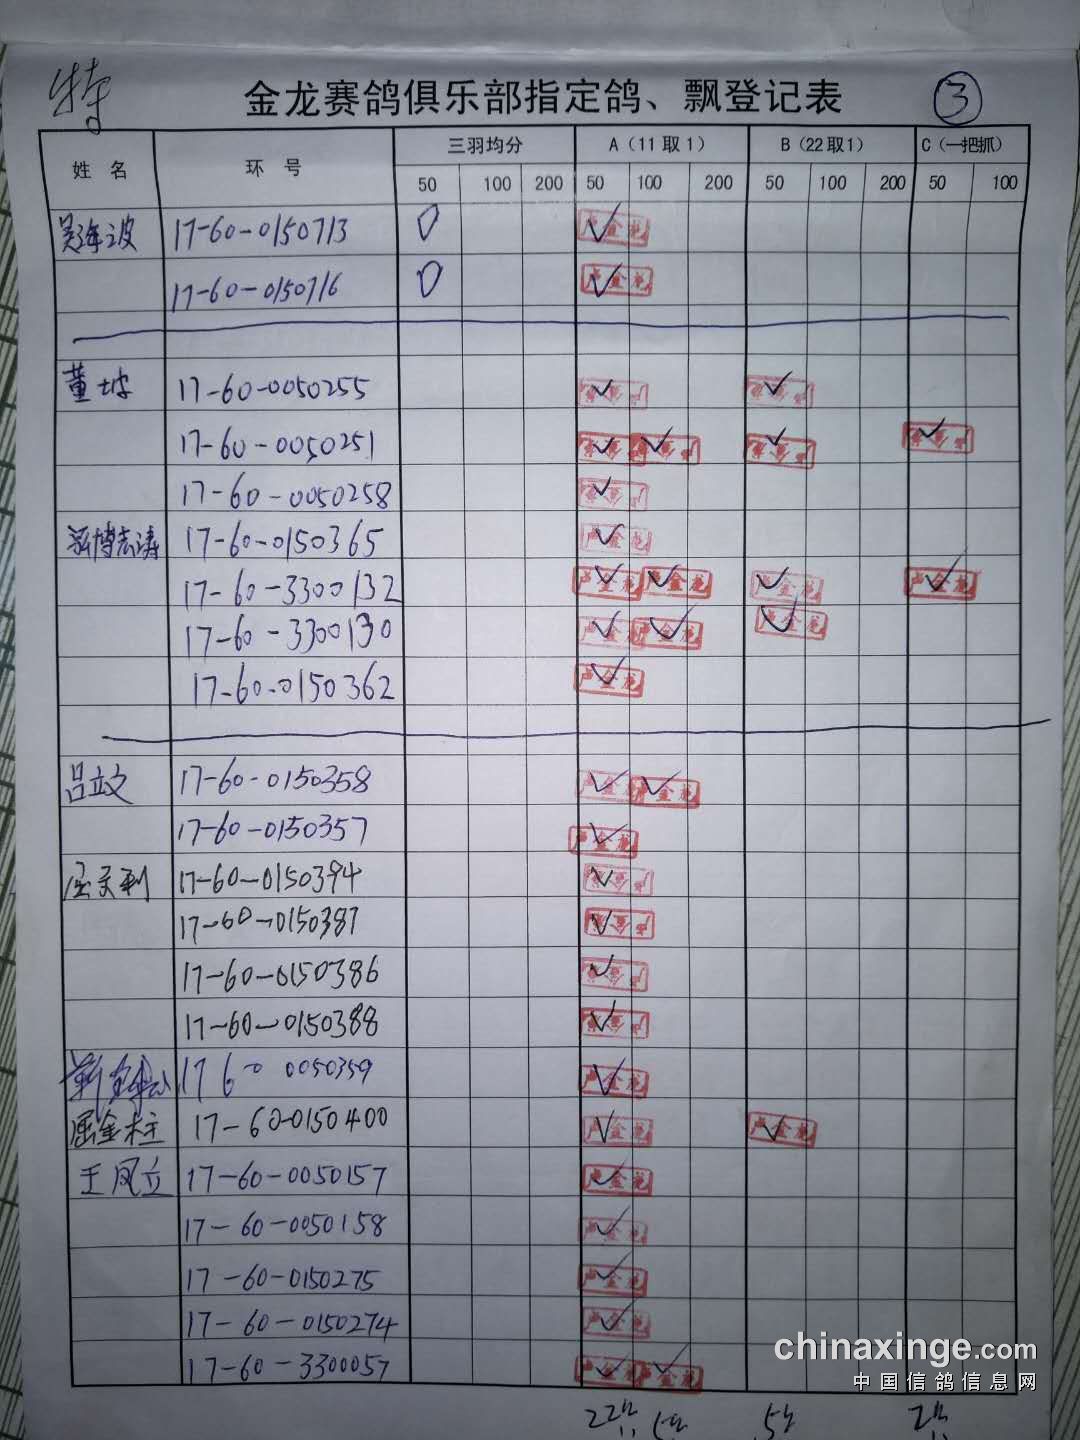 特
金龙赛鸽俱乐部指定鸽、飘登记表 ③
姓名 环号 三羽均分 A(11取1) B(22取1) C(一把抓)
50 100 200 50 100 200 50 100 200 50 100
吴海波 17-60-0150713 0 ✓
17-60-0150716 0 ✓
董坡 17-60-0050255 ✓ ✓
17-60-0050251 ✓ ✓ ✓ ✓
17-60-0050258 ✓
淄博志涛 17-60-0150365 ✓
17-60-3300132 ✓ ✓ ✓ ✓
17-60-3300130 ✓ ✓ ✓
17-60-0150362 ✓
吕立文 17-60-0150358 ✓ ✓
17-60-0150357 ✓
17-60-0150394 ✓
17-60-0150387 ✓
17-60-0150386 ✓
17-60-0150388 ✓
17 60 0050359 ✓
屈金柱 17-60-0150400 ✓ ✓
王凤立 17-60-0050157 ✓
17-60-0050158 ✓
17-60-0150275 ✓
17-60-0150274 ✓
17-60-3300057 ✓ ✓
chinaxinge.com
中国信鸽信息网